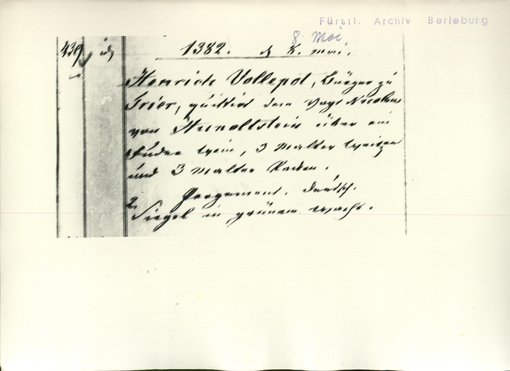 Fürstl. Archiv Berleburg
8. Mai
439
1382. d 8. Mai.
Henrich Vollepol, Bürger zu
Trier, quittirt dem Vogt Nicolaus
von Hunoltstein über ein
Fuder Wein, 3 Malter Weitzen
und 3 Malter Korn.
Pergament. deutsch.
Siegel in grünem Wachs.